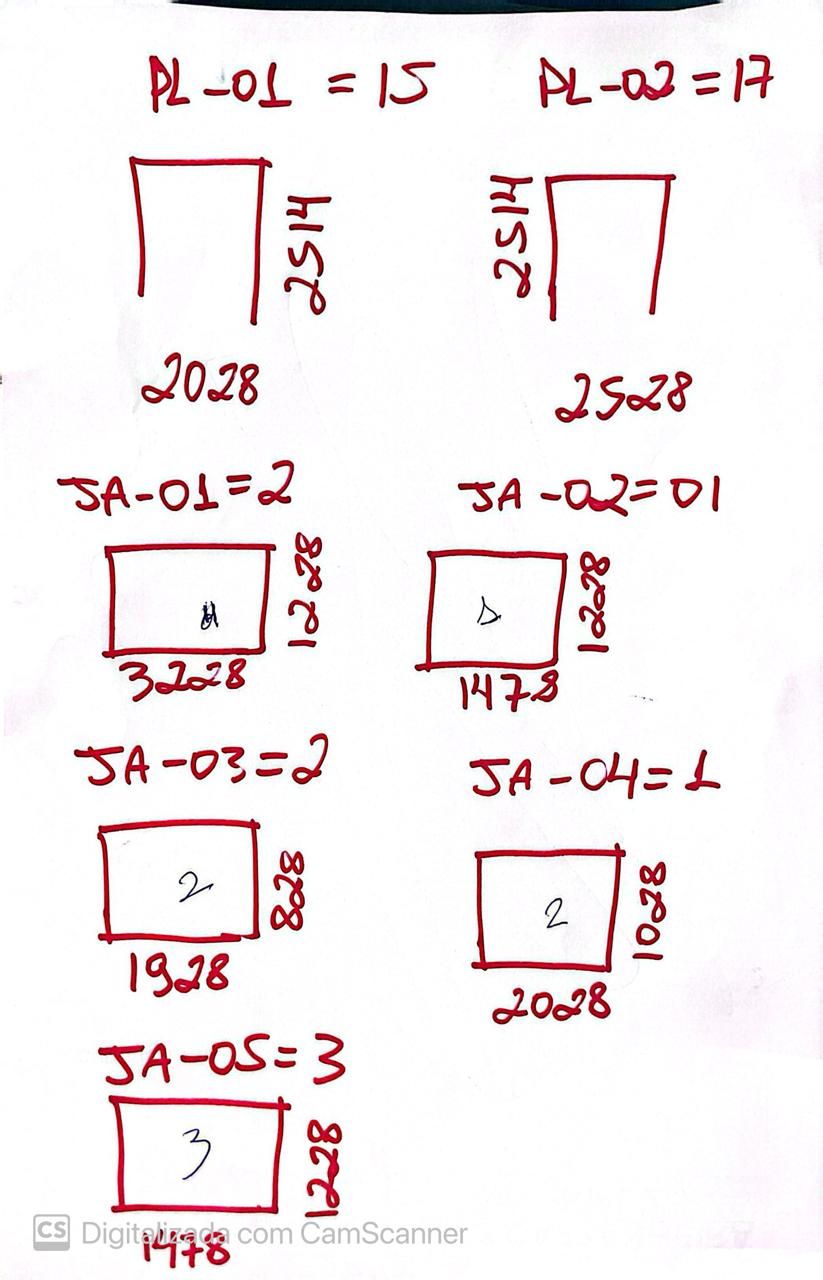 PL-01 = 15
PL-02 = 17
2514
2514
2028
2528
JA-01=2
JA-02=01
1228
1228
3228
1478
JA-03=2
JA-04=1
2
828
2
1028
1928
2028
JA-05=3
3
1228
CS Digitalizada com CamScanner
1478